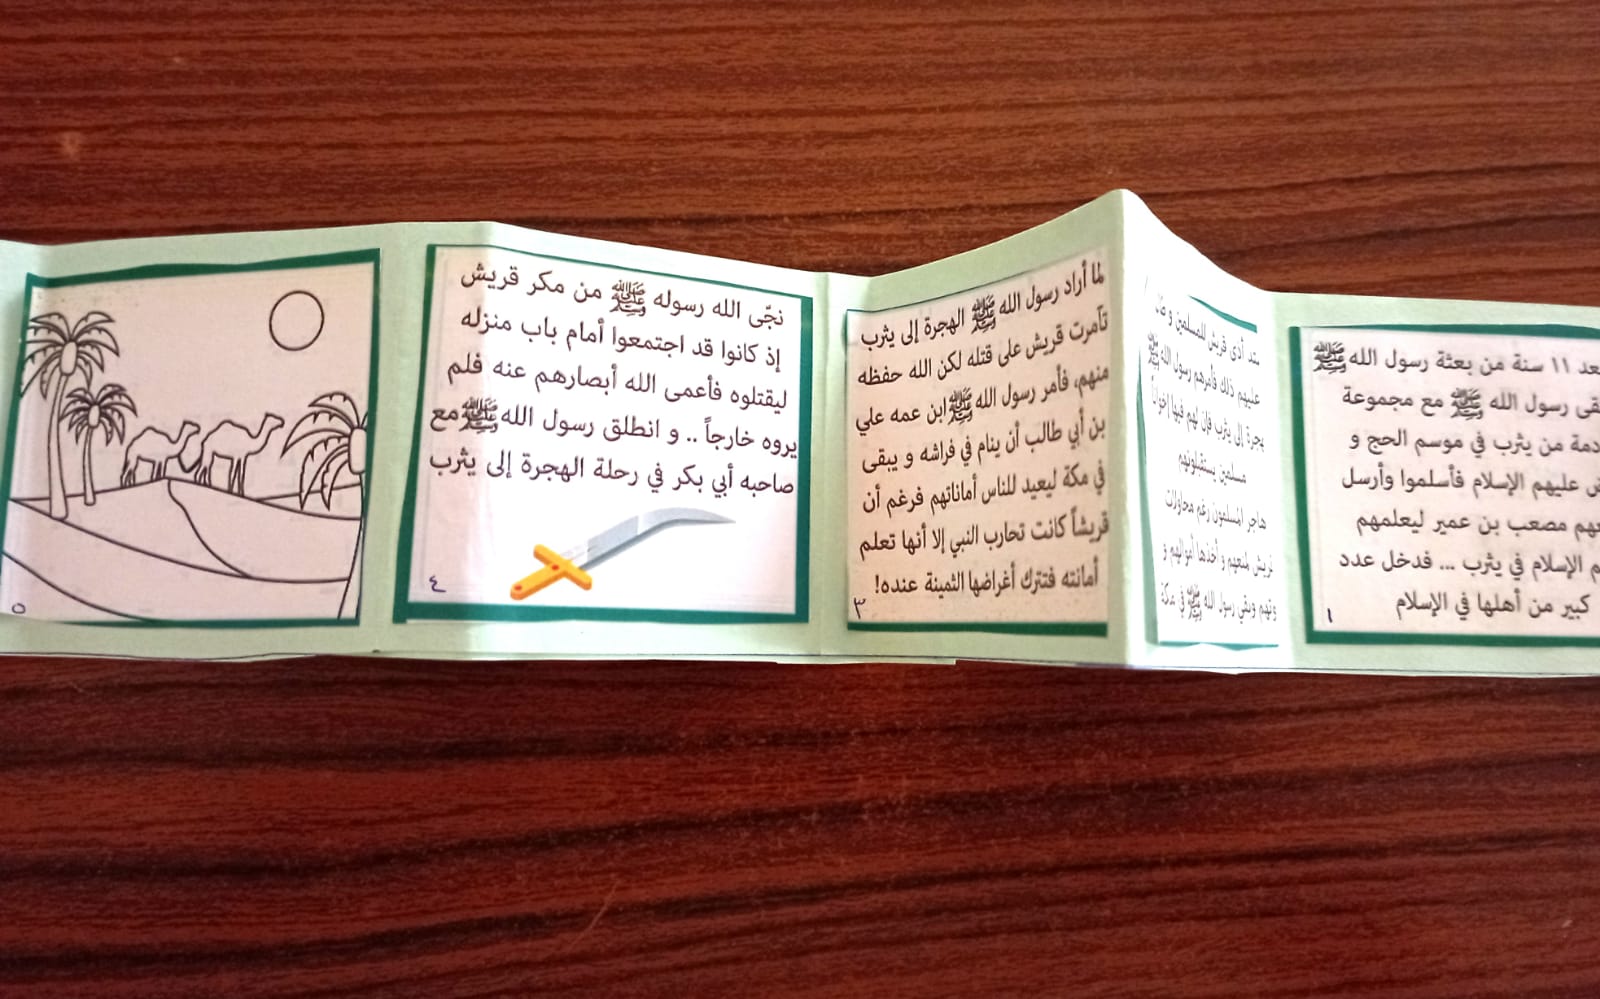 عد ١١ سنة من بعثة رسول الله ﷺ
قى رسول الله ﷺ مع مجموعة
دمة من يثرب في موسم الحج و
ض عليهم الإسلام فأسلموا وأرسل
عهم مصعب بن عمير ليعلمهم
م الإسلام في يثرب ... فدخل عدد
كبير من أهلها في الإسلام
١
أذى قريش للمسلمين و
عليهم ذلك فأمرهم رسول الله ﷺ
إلى يثرب فإن لهم فيها إخواناً
مسلمين يستقبلونهم
هاجر المسلمون رغم محاولات
قريش لمنعهم و أخذها أموالهم و
وبقي رسول الله ﷺ في مكة
لما أراد رسول الله ﷺ الهجرة إلى يثرب
تآمرت قريش على قتله لكن الله حفظه
منهم، فأمر رسول الله ﷺ ابن عمه علي
بن أبي طالب أن ينام في فراشه و يبقى
في مكة ليعيد للناس أماناتهم فرغم أن
قريشاً كانت تحارب النبي إلا أنها تعلم
أمانته فتترك أغراضها الثمينة عنده!
٣
نجّى الله رسوله ﷺ من مكر قريش
إذ كانوا قد اجتمعوا أمام باب منزله
ليقتلوه فأعمى الله أبصارهم عنه فلم
يروه خارجاً .. و انطلق رسول الله ﷺ مع
صاحبه أبي بكر في رحلة الهجرة إلى يثرب
٤
٥